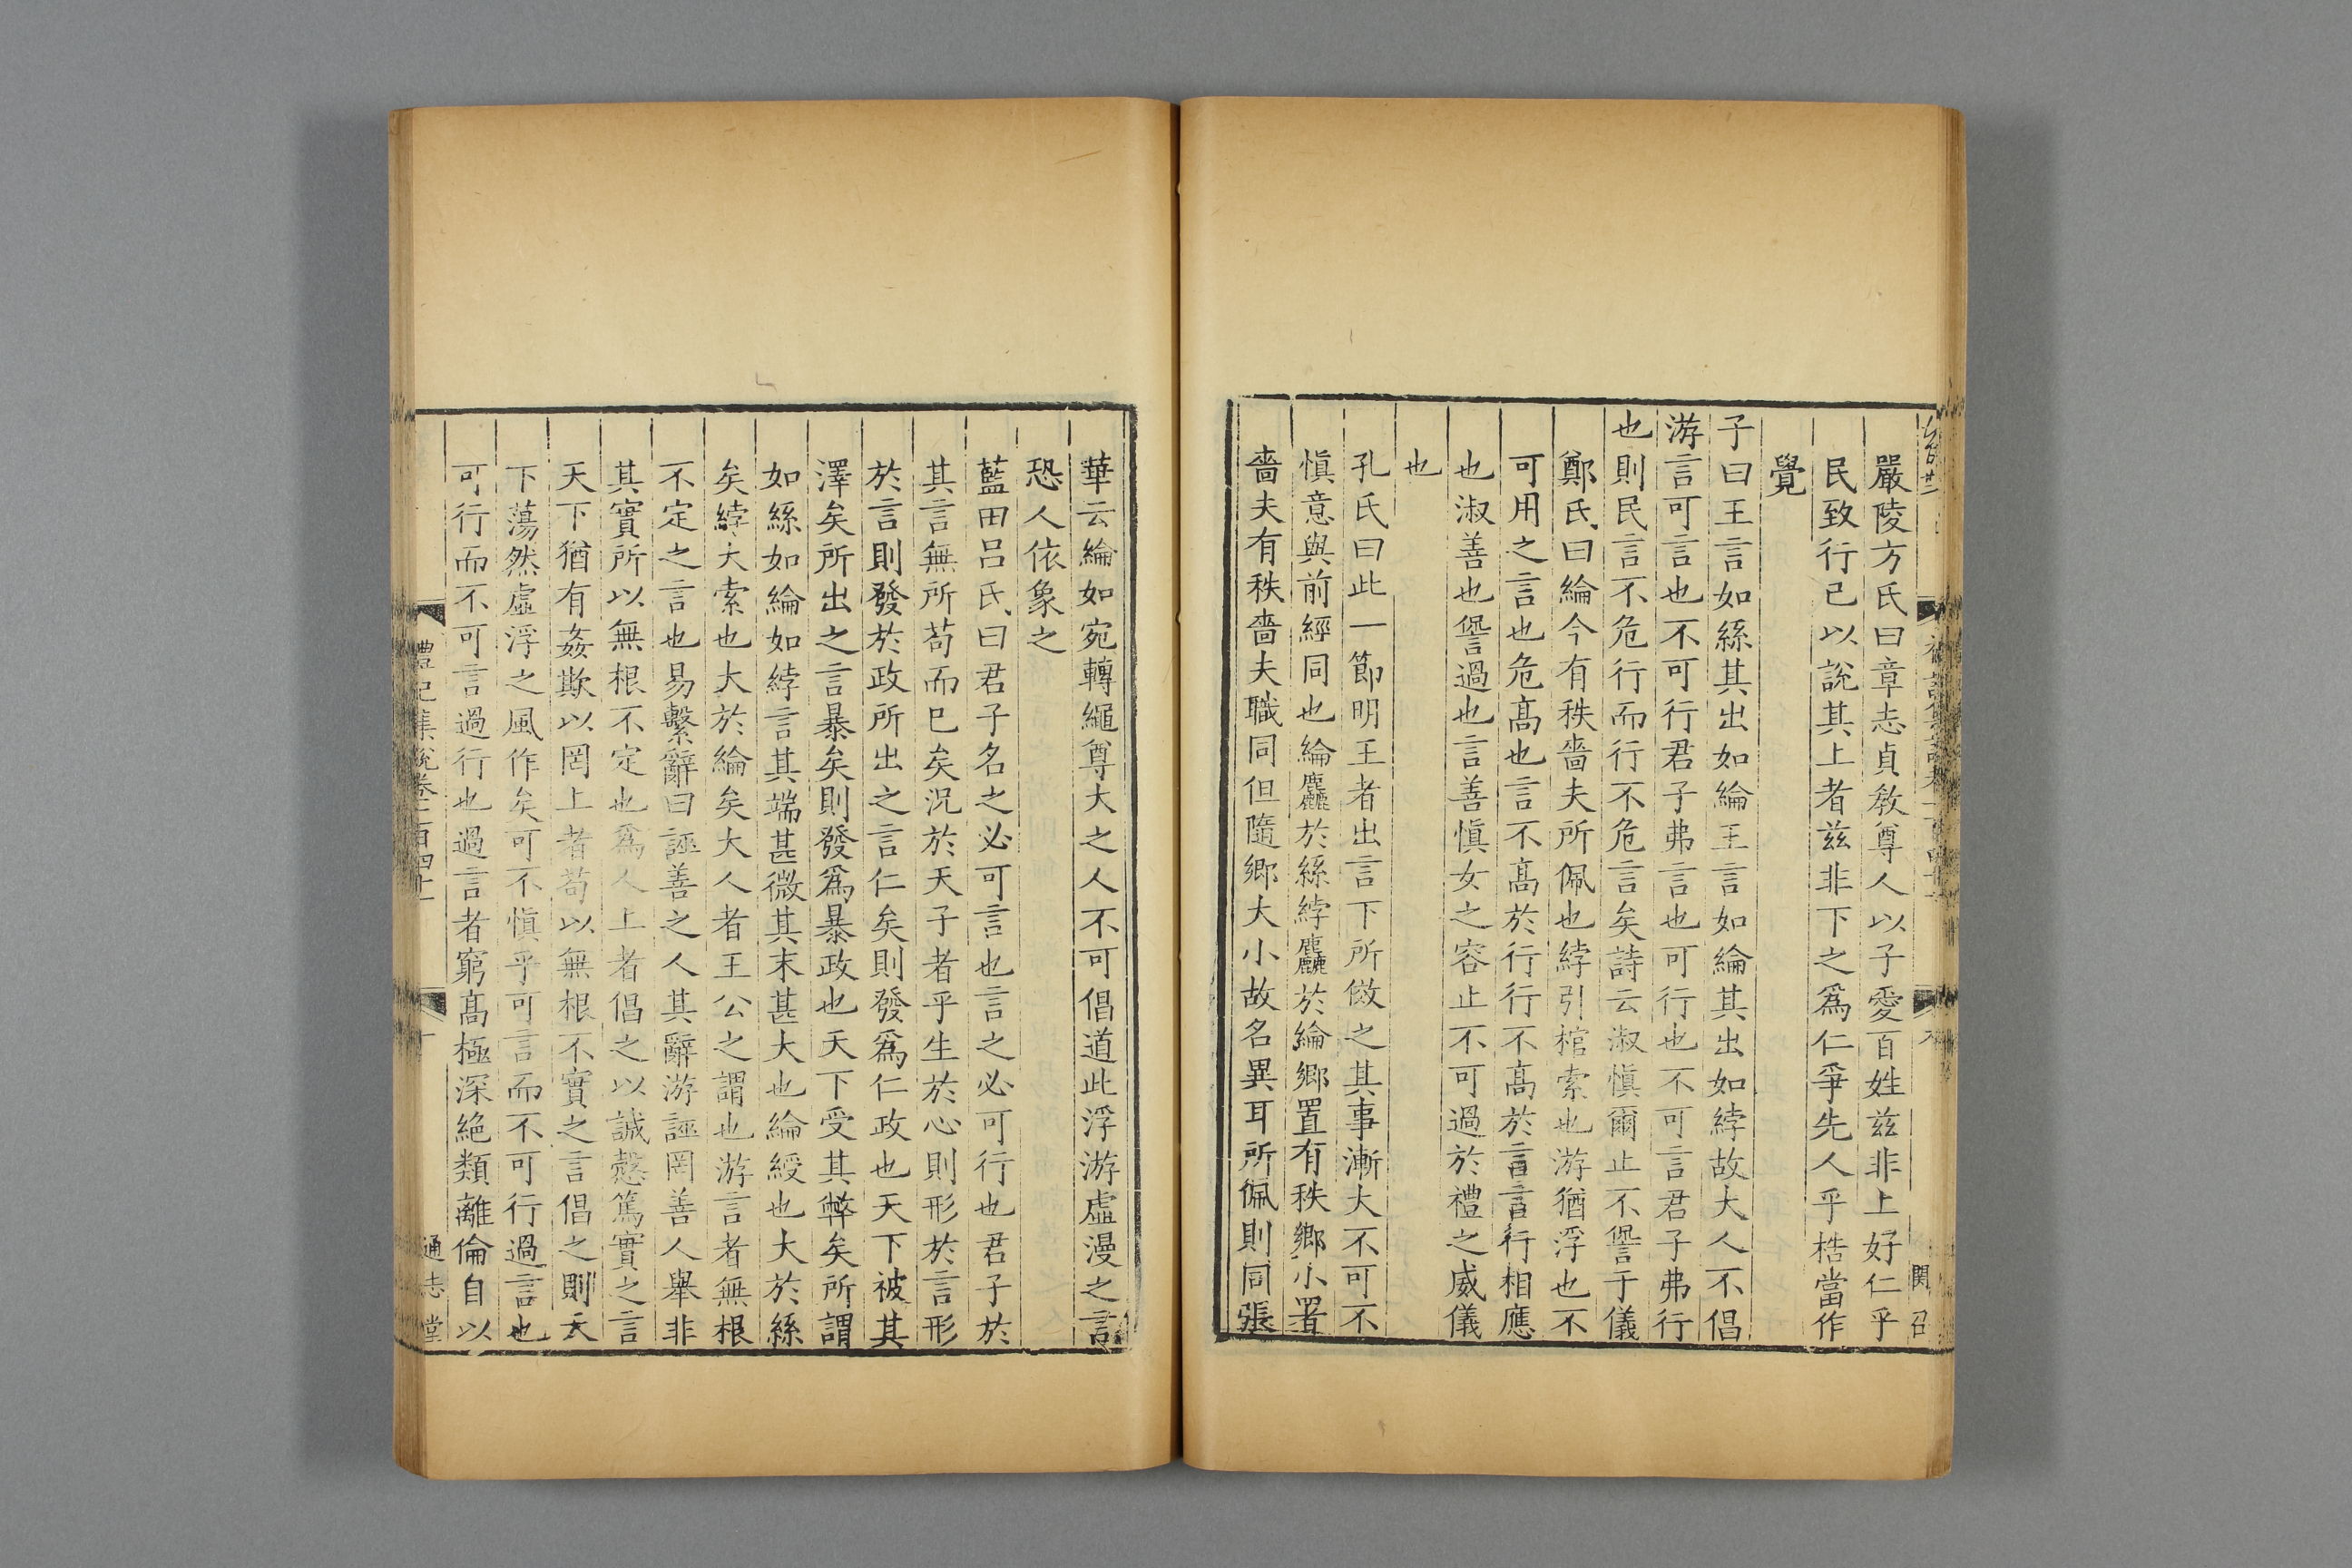 嚴陵方氏曰章志貞敎尊人以子愛百姓兹非上好仁乎
民致行己以說其上者兹非下之爲仁爭先人乎梏當作
覺
子曰王言如絲其出如綸王言如綸其出如綍故大人不倡
游言可言也不可行君子弗言也可行也不可言君子弗行
也則民言不危行而行不危言矣詩云淑愼爾止不諐于儀
鄭氏曰綸今有秩嗇夫所佩也綍引棺索也游猶浮也不
可用之言也危髙也言不髙於行行不髙於言言行相應
也淑善也諐過也言善愼女之容止不可過於禮之威儀
也
孔氏曰此一節明王者出言下所倣之其事漸大不可不
愼意與前經同也綸麤於絲綍麤於綸鄉置有秩鄉小署
嗇夫有秩嗇夫職同但隨鄉大小故名異耳所佩則同張
華云綸如宛轉繩尊大之人不可倡道此浮游虛漫之言
恐人依象之
藍田呂氏曰君子名之必可言也言之必可行也君子於
其言無所苟而巳矣况於天子者乎生於心則形於言形
於言則發於政所出之言仁矣則發爲仁政也天下被其
澤矣所出之言暴矣則發爲暴政也天下受其弊矣所謂
如絲如綸如綍言其端甚微其末甚大也綸綬也大於絲
矣綍大索也大於綸矣大人者王公之謂也游言者無根
不定之言也易繫辭曰誣善之人其辭游誣罔善人舉非
其實所以無根不定也爲人上者倡之以誠慤篤實之言
天下猶有姦欺以罔上者苟以無根不實之言倡之則天
下蕩然虛浮之風作矣可不愼乎可言而不可行過言也
可行而不可言過行也過言者窮髙極深絶類離倫自以
禮記集說卷一百四十
通志堂